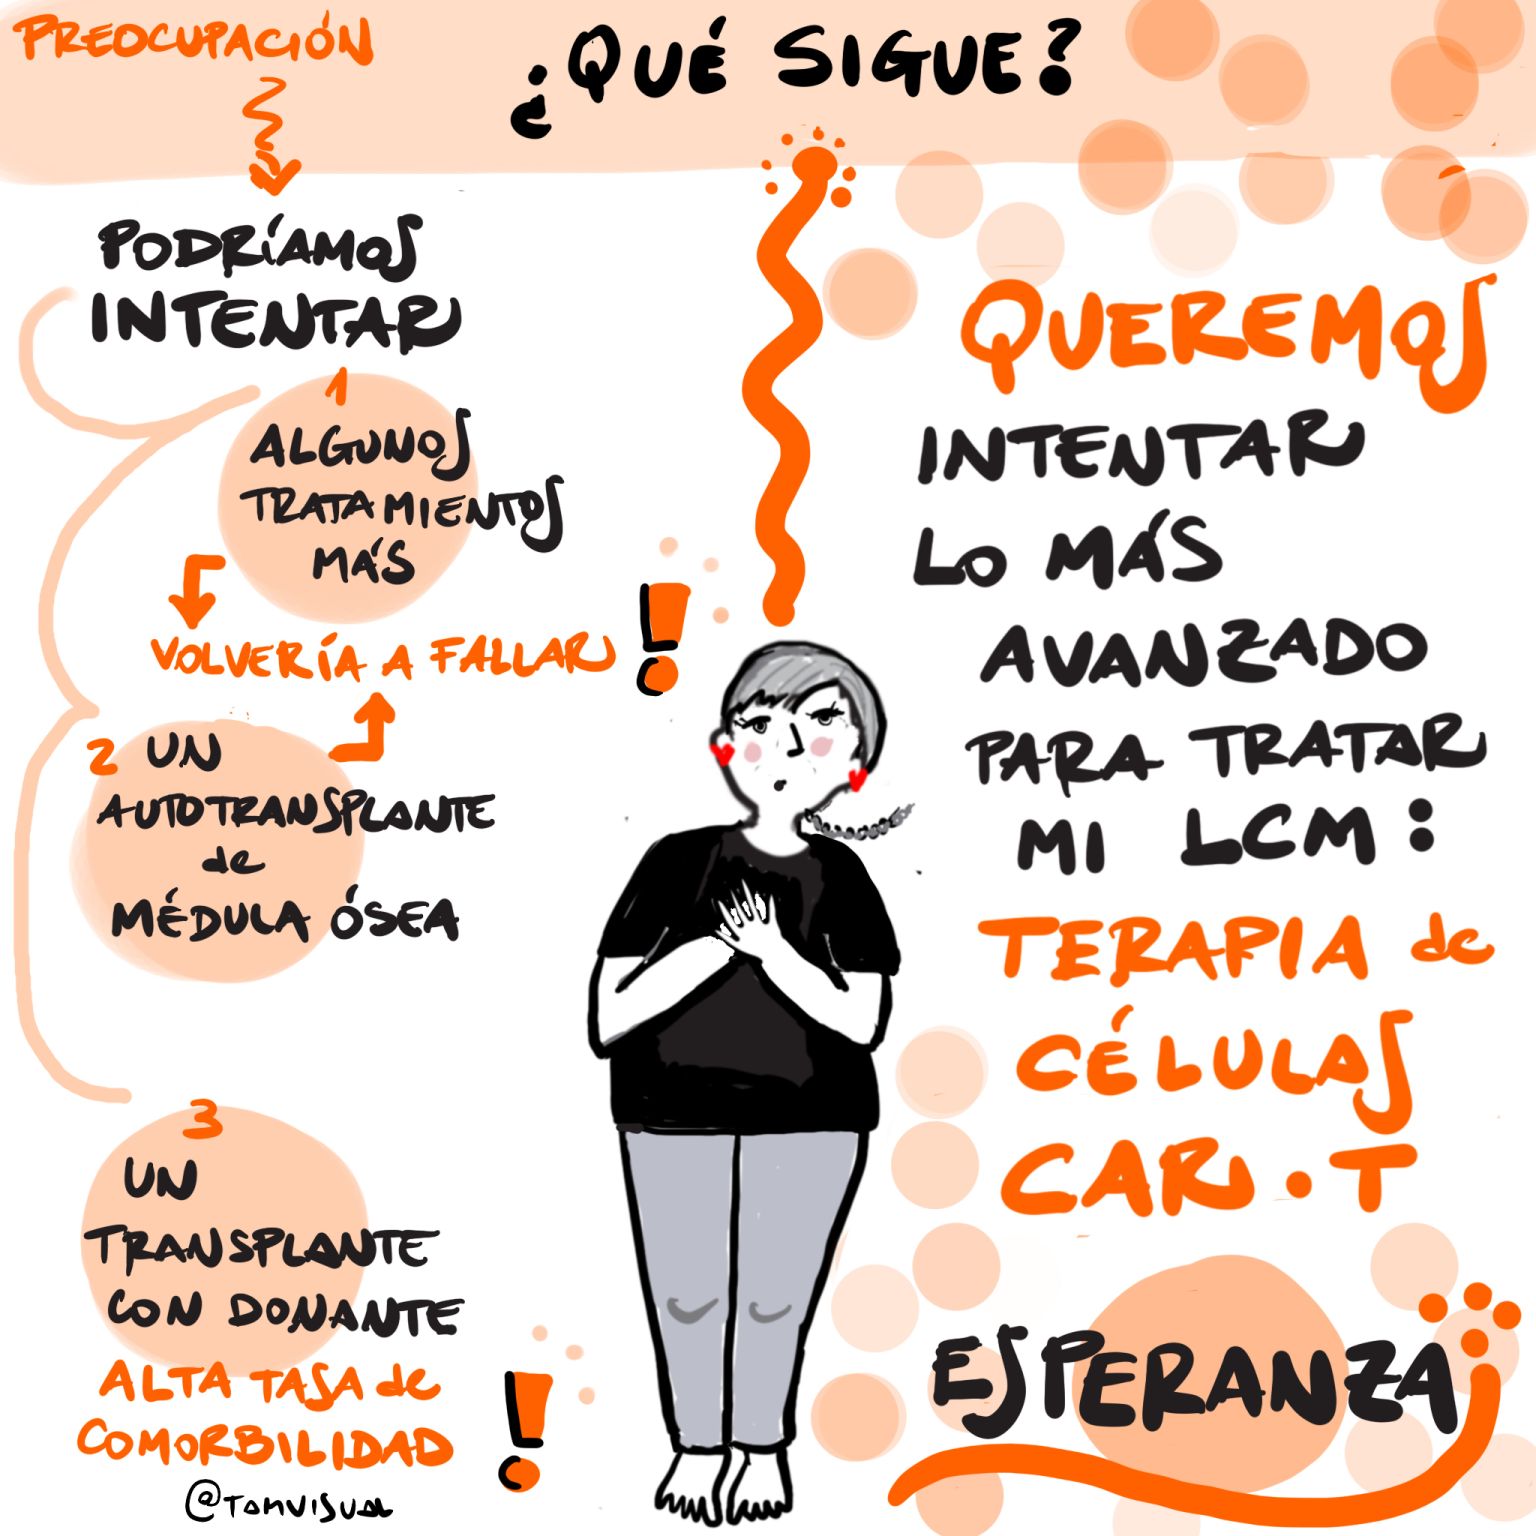 PREOCUPACIÓN
¿QUÉ SIGUE?
PODRÍAMOS
INTENTAR
1
ALGUNOS
TRATAMIENTOS
MÁS
VOLVERÍA A FALLAR
2 UN
AUTOTRANSPLANTE
de
MÉDULA ÓSEA
3
UN
TRANSPLANTE
CON DONANTE
ALTA TASA de
COMORBILIDAD
@TAMVISUAL
QUEREMOS
INTENTAR
LO MÁS
AVANZADO
PARA TRATAR
MI LCM:
TERAPIA de
CÉLULAS
CAR·T
ESPERANZA